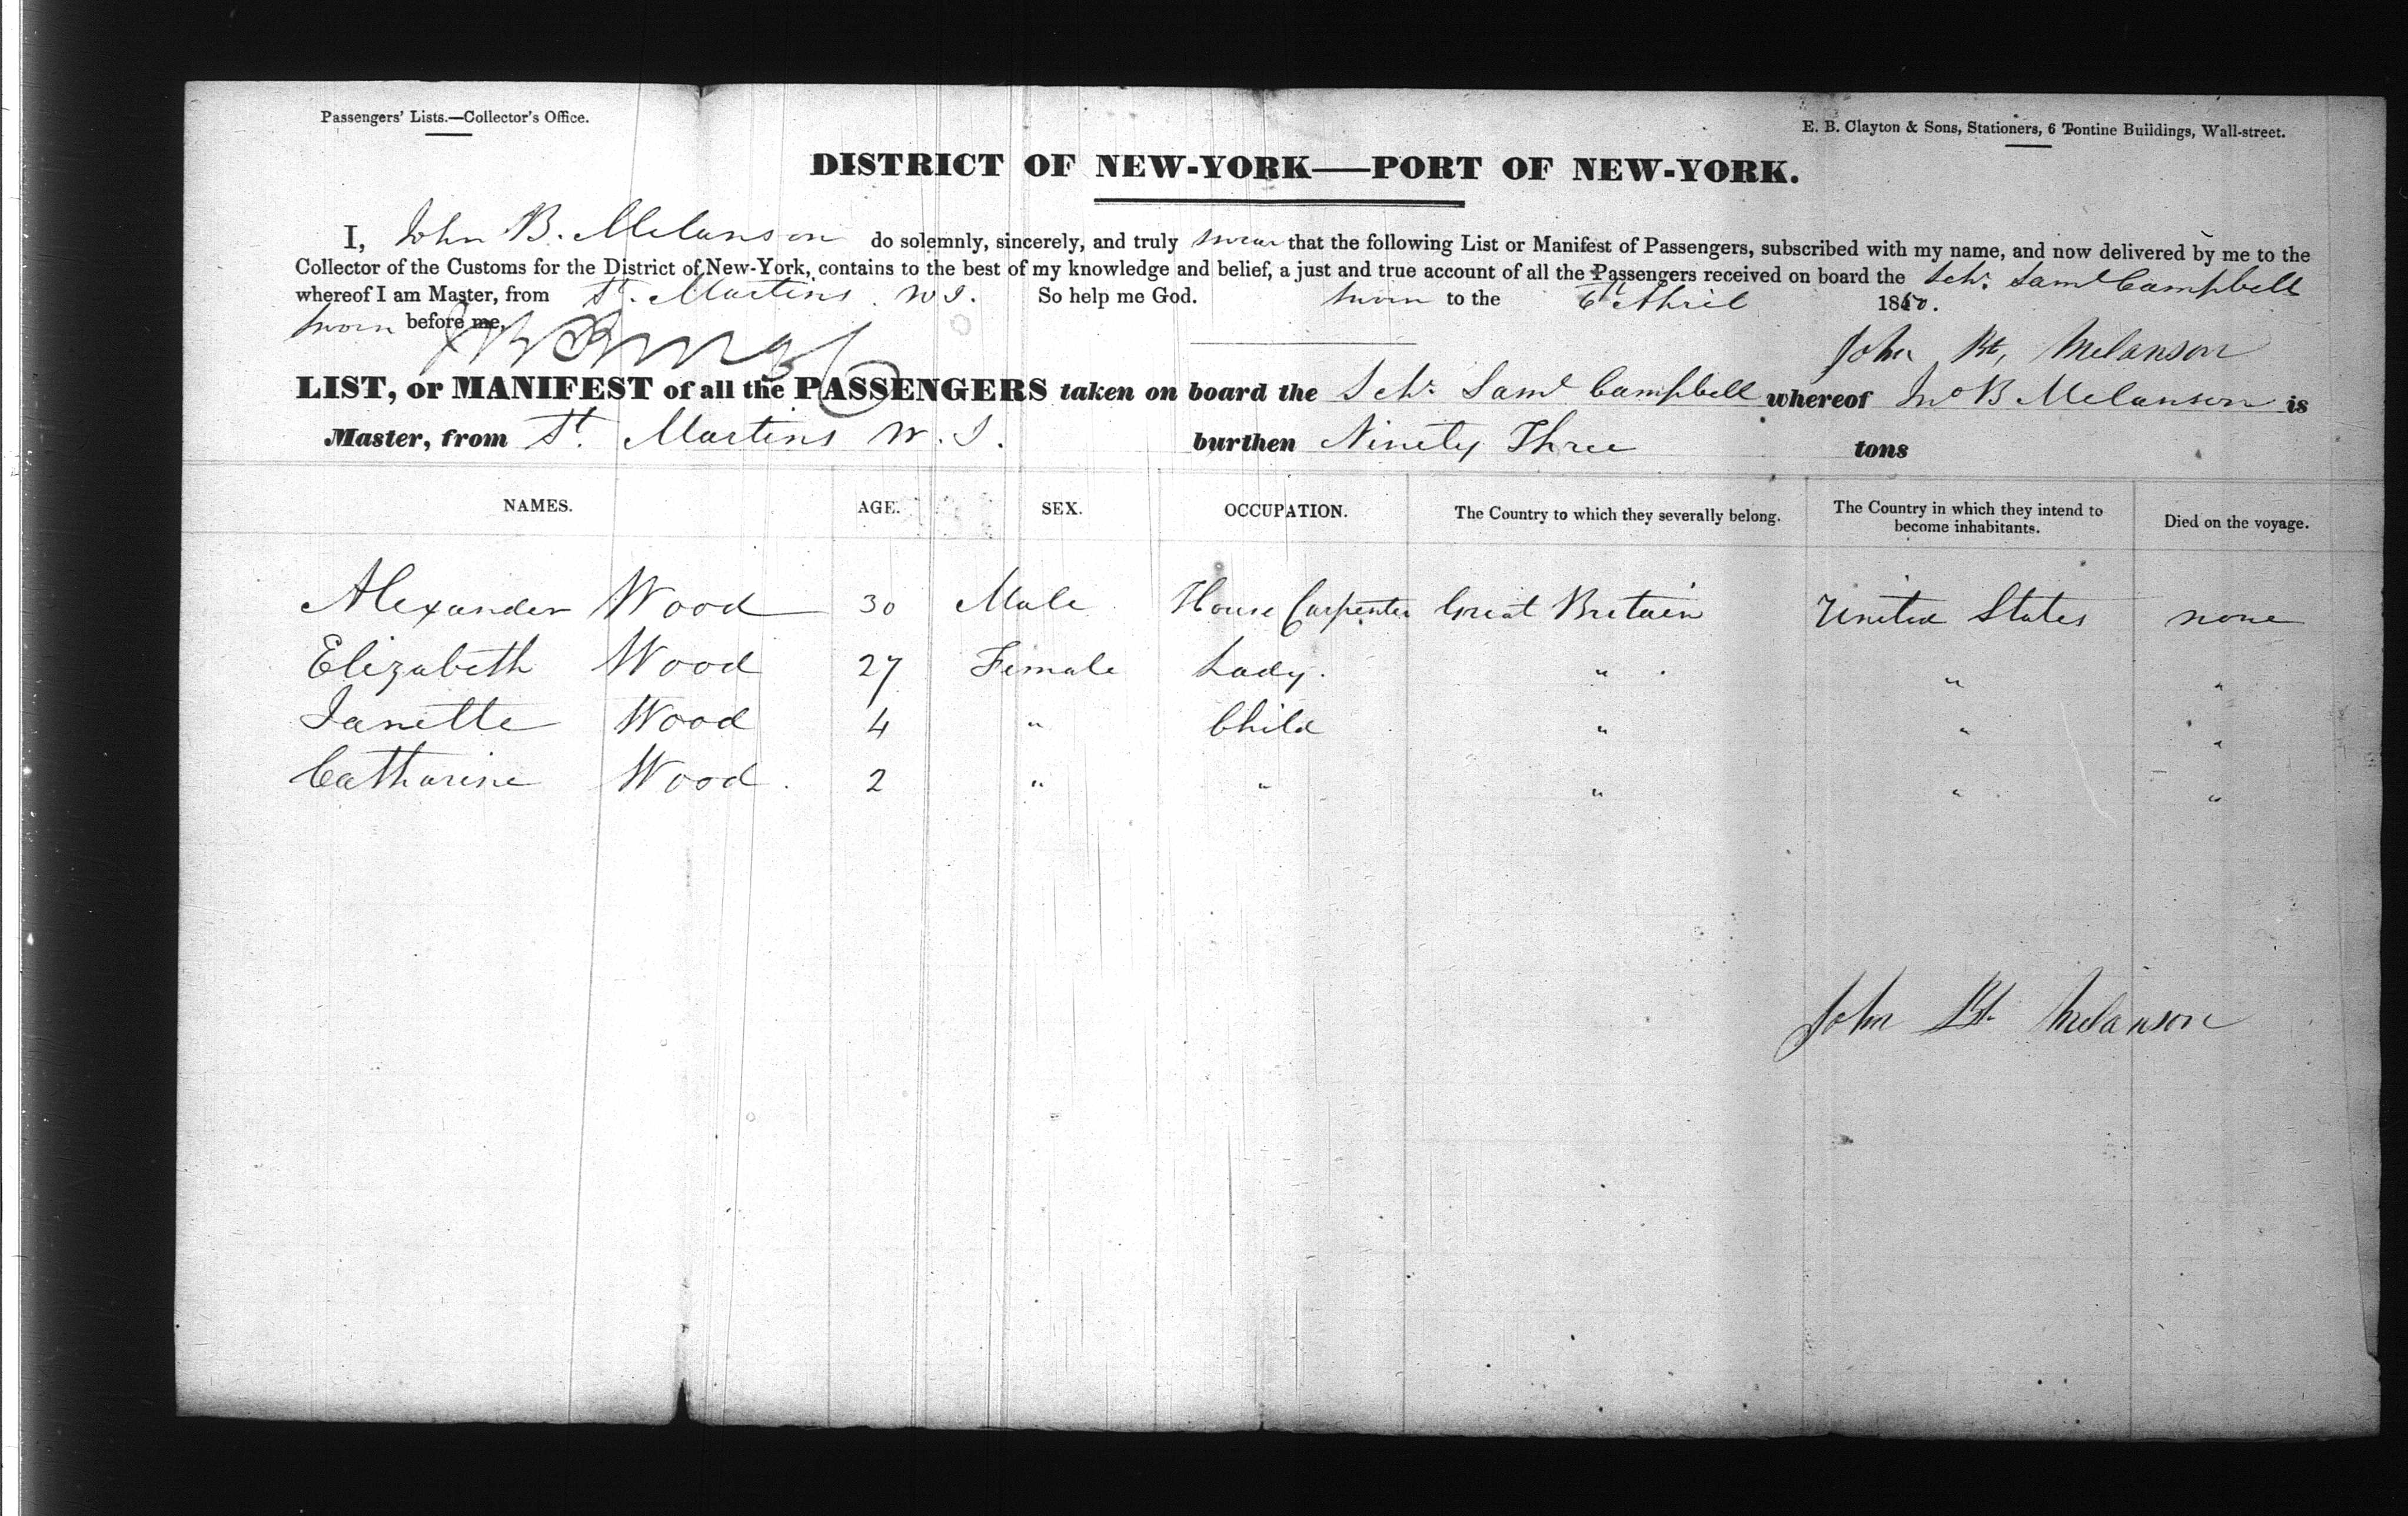 Passengers' Lists.—Collector's Office.
E. B. Clayton & Sons, Stationers, 6 Tontine Buildings, Wall-street.
DISTRICT OF NEW-YORK——PORT OF NEW-YORK.
I, John B. Melanson do solemnly, sincerely, and truly swear that the following List or Manifest of Passengers, subscribed with my name, and now delivered by me to the
Collector of the Customs for the District of New-York, contains to the best of my knowledge and belief, a just and true account of all the Passengers received on board the Schr. Saml Campbell
whereof I am Master, from St. Martins W.I. So help me God. Sworn to the 6th April 1850.
Sworn before me,
John Bt. Melanson
LIST, or MANIFEST of all the PASSENGERS taken on board the Schr Saml Campbell whereof Jno B Melanson is
Master, from St. Martins W. I. burthen Ninety Three tons
NAMES. AGE. SEX. OCCUPATION. The Country to which they severally belong. The Country in which they intend to become inhabitants. Died on the voyage.
Alexander Wood 30 Male House Carpenter Great Britain United States none
Elizabeth Wood 27 Female Lady. " " "
Janette Wood 4 " Child " " "
Catharine Wood. 2 " " " " "
John Bt. Melanson